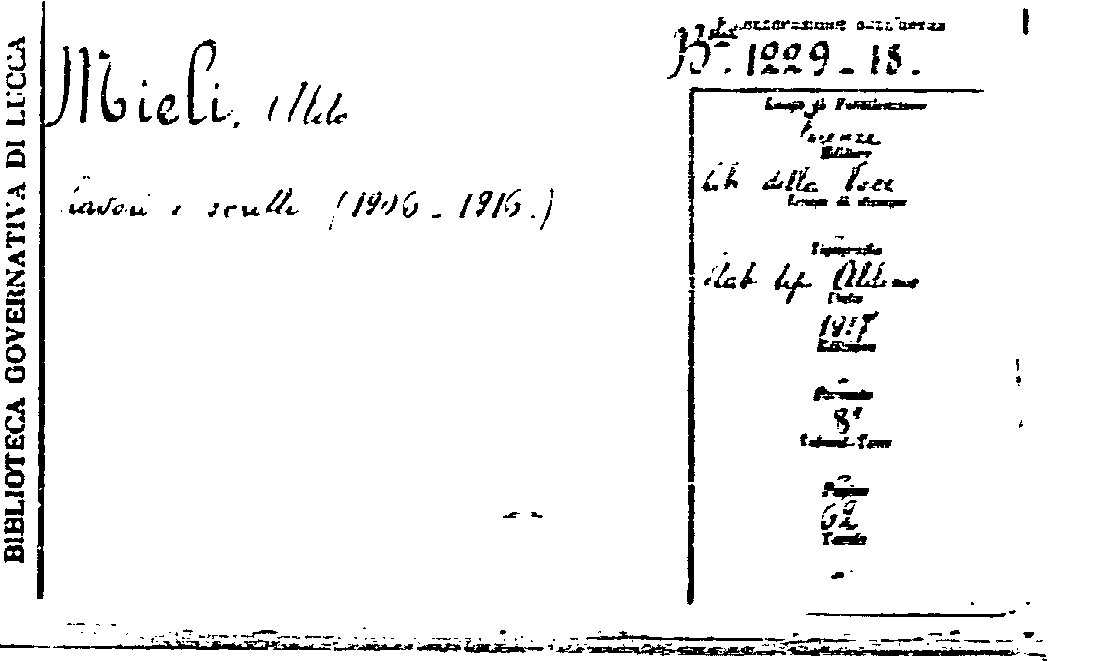 BIBLIOTECA GOVERNATIVA DI LUCCA
Mieli, Aldo
Lavori e scritti (1906 - 1916.)
Collocazione dell'opera
Bta. 1229 - 18.
Luogo di Pubblicazione
Firenze
Editore
Lib della Voce
Luogo di stampa
-
Tipografia
Stab tip Aldino
Data
Edizione
-
Formato
8º
Volumi-Tomi
-
Pagine
62
Tavole
-